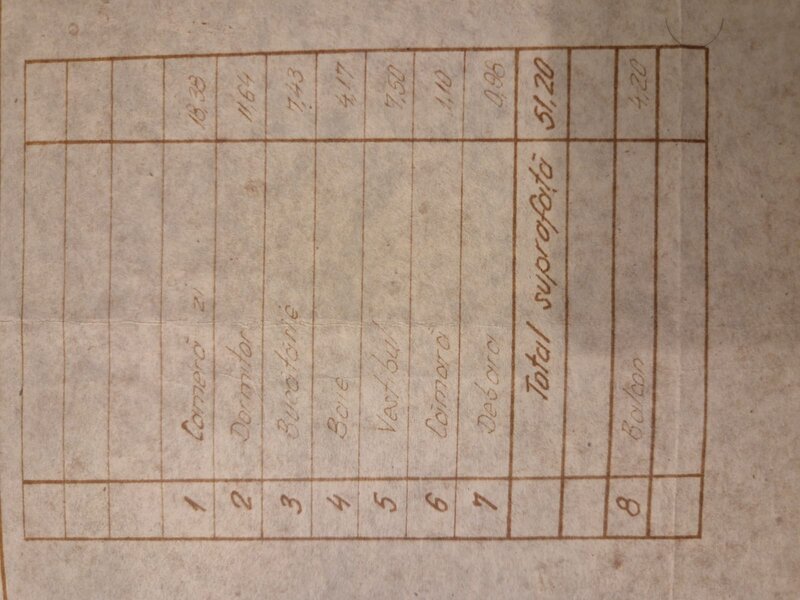 1 Cameră zi 18,38
2 Dormitor 11,64
3 Bucătărie 7,43
4 Baie 4,17
5 Vestibul 7,50
6 Cămară 1,10
7 Debara 0,98
Total suprafață 51,20
8 Balcon 4,20